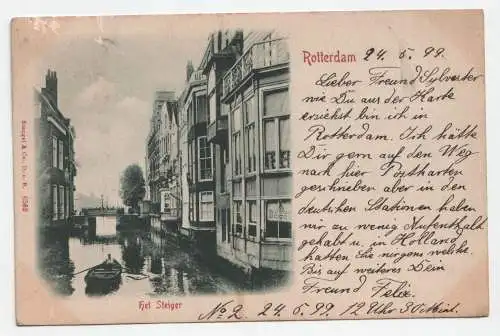 Rotterdam 24. 5. 99.
Lieber Freund Sylvester
wie Du aus der Karte
ersichst bin ich in
Rotterdam. Ich hätte
Dir gern auf den Weg
nach hier Postkarten
geschrieben aber in den
deutschen Stationen haben
wir zu wenig Aufenthalt
gehabt u. in Holland
kaufen Sie nirgens welche.
Bis auf weiteres Dein
Freund Felix.
Stengel & Co., D. u. B.
Het Steiger
No 2. 24. 5. 99. 12 Uhr 30 Min.